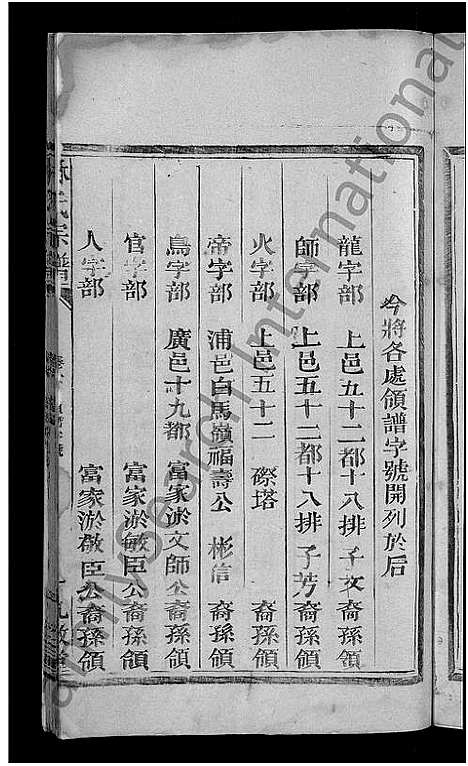 今將各處領譜字號開列於后
龍字部 上邑五十二都十八排子文 裔孫領
師字部 上邑五十二都十八排子芳 裔孫領
火字部 上邑五十二 磜塔 裔孫領
帝字部 浦邑白馬嶺福壽公 彬信 裔孫領
鳥字部 廣邑十九都 富家淤文師公裔孫領
官字部 富家淤敏臣公裔孫領
人字部 富家淤敬臣公裔孫領
氏宗譜
FamilySearch International